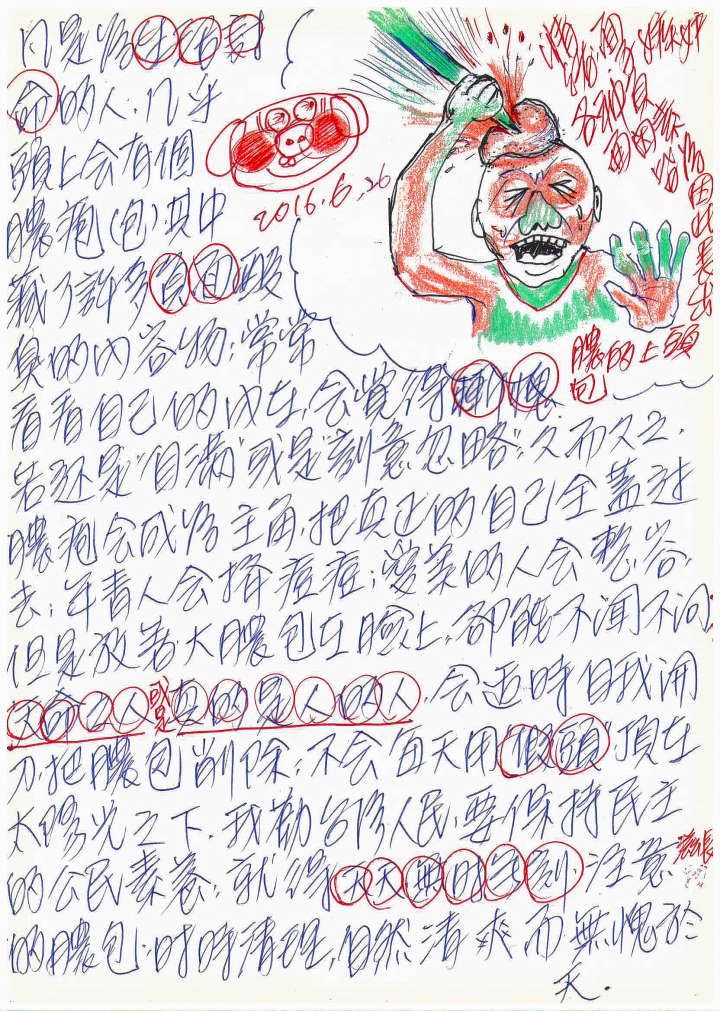 凡是為生理刻
命的人,几乎
頭上会有個
膿疱(包),其中
藏了許多負面酸
臭的內容物;常常
看看自己的內在,会覺得
若还是"自滿"或是"刻意忽略",久而久之,
膿疱会成為主角,把真正的自己全蓋过
去;年青人会擠痘痘;愛美的人会整容,
但是放著大膿包在臉上,卻能不聞不问,
天命之人或真的是人的人,会适時自我開
刀,把膿包削除;不会每天用"假頭"頂在
太陽光之下,我勸台湾人民,要保持民主
的公民素養;就得天天無時無刻,注意
的膿包,时時清理,自然清爽而無愧於
天.
2016.6.26
各种負
面的
因此長出
膿的上頭
包